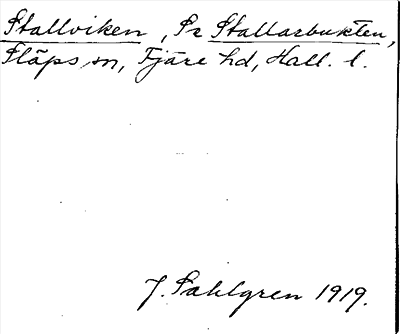 Stallviken, Pr Stallarbukten,
Släps sn, Fjäre hd, Hall. l.
J. Sahlgren 1919.